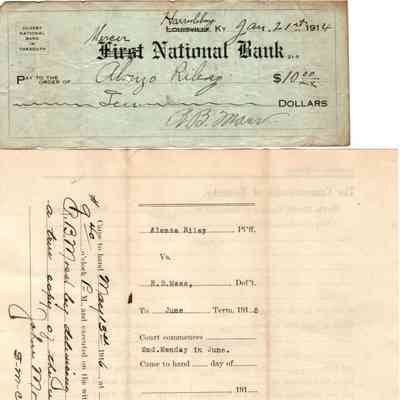 OLDEST
NATIONAL
BANK
IN
Harrodsburg
LOUISVILLE, KY. Jan. 21st 1914
Mercer
First National Bank
PAY TO THE
ORDER OF Alonzo Riley $10.00
Ten DOLLARS
Alonza Riley Pl'ff.
Vs.
Def't.
To June Term, 191
Court commences
2nd.Monday in June.
Came to hand day of
191
Came to hand May 13th 1916 at
9 o'clock P. M., and executed on the wit
by delivering
a true copy of the
John